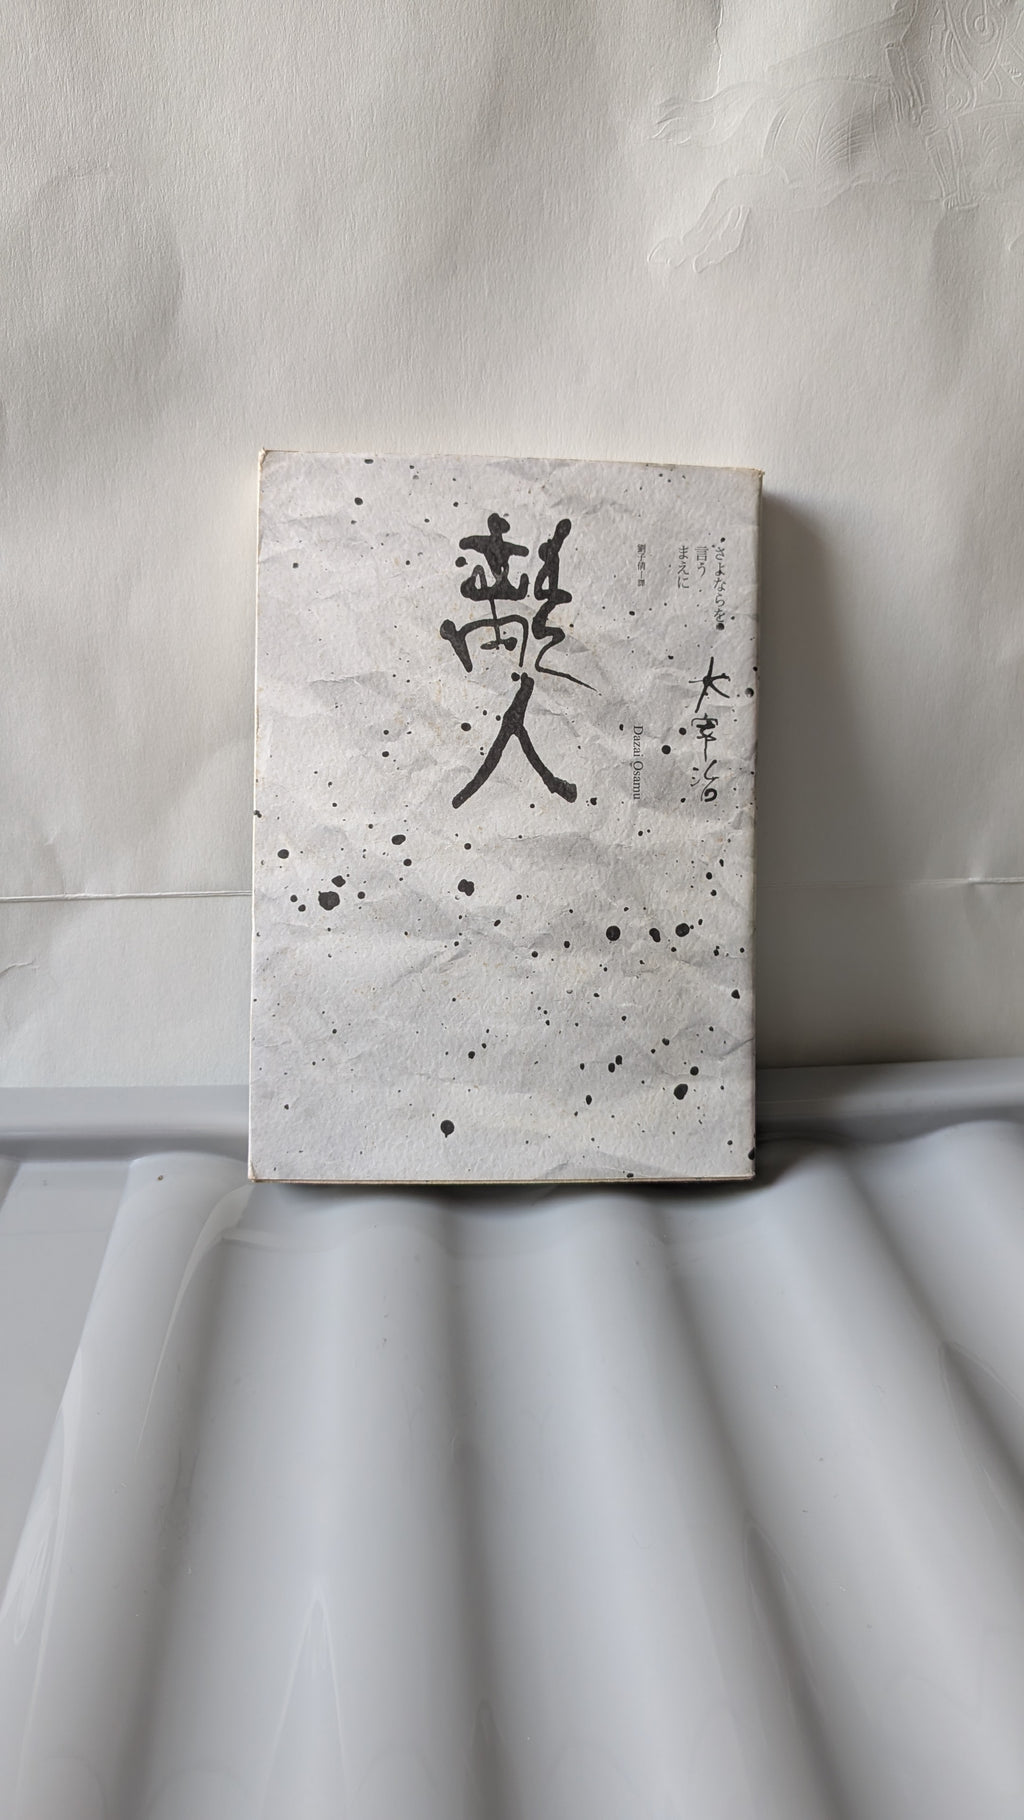 さよならを
言う
まえに
太宰治
劉子倩｜譯
Dazai Osamu
離人